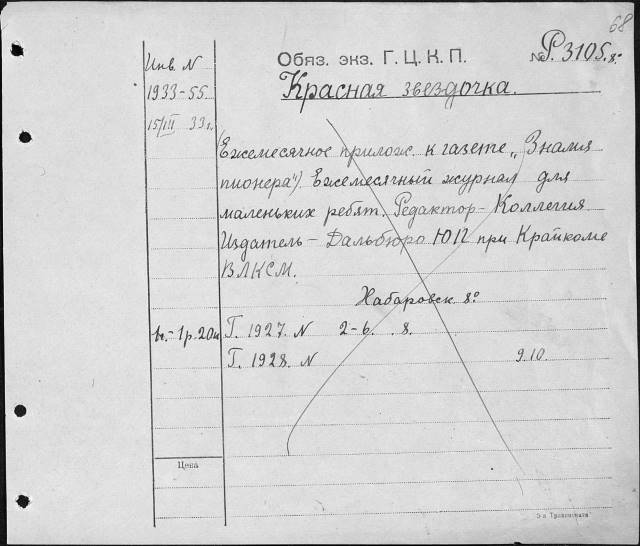 68
Инв. N
Обяз. экз. Г. Ц. К. П.
№ Р. 3105. 8°
1933-55.
Красная звездочка.
15/III 33 г.
Ежемесячное прилож. к газете „Знамя
пионера"). Ежемесячный журнал для
маленьких ребят. Редактор - Коллегия
Издатель - Дальбюро ЮП при Крайкоме
ВЛКСМ.
Хабаровск 8°
1р. 20к Г. 1927. N 2-6. 8.
Г. 1928. N 9.10.
Цена